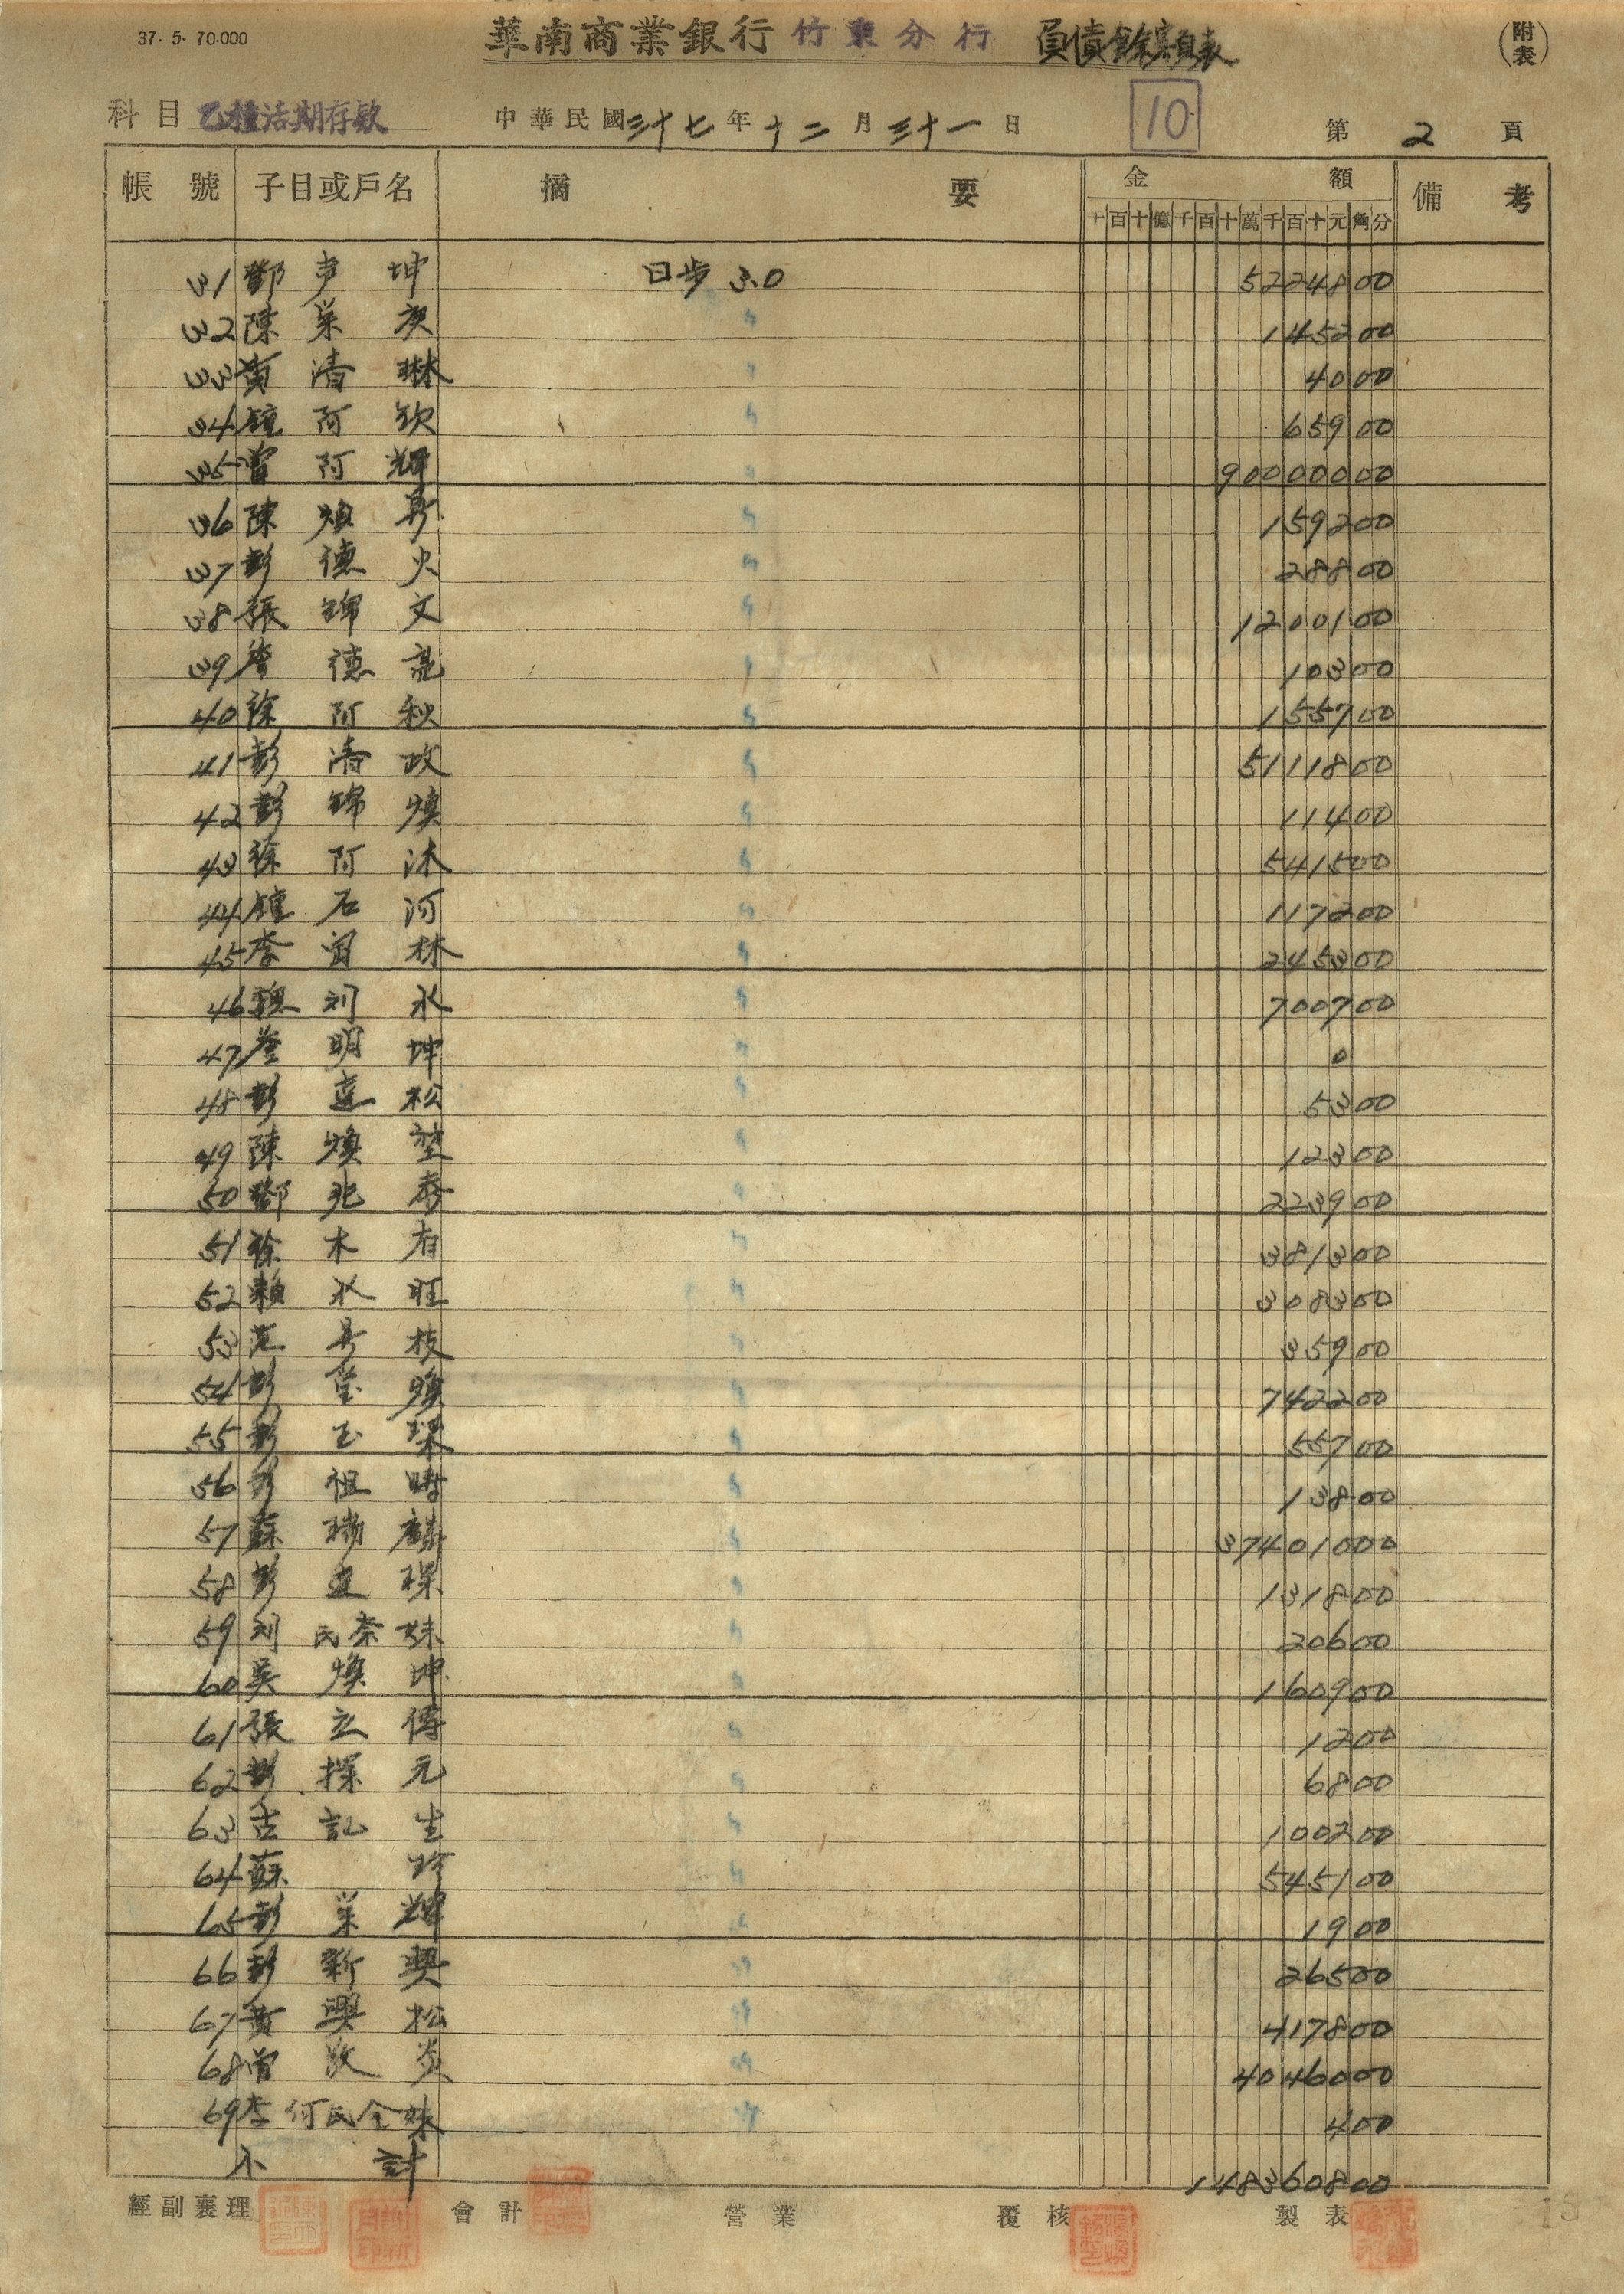 37. 5. 70.000
華南商業銀行 竹東分行 負債餘額表
(附表)
科目 乙種活期存款 中華民國三十七年十二月三十一日 10 第 2 頁
帳號 子目或戶名 摘要 金額 備考
千百十億千百十萬千百十元角分
31 鄧声坤 日步 3.0 5224800
32 陳業庚 〃 145200
33 黃清琳 〃 4000
34 鍾阿欽 〃 65900
35 曾阿輝 〃 90000000
36 陳煥昇 〃 159200
37 彭德火 〃 28800
38 張錦文 〃 1200100
39 詹德亮 〃 10300
40 徐阿秋 〃 155700
41 彭清政 〃 5111800
42 彭錦煥 〃 11400
43 徐阿沐 〃 541500
44 鍾石河 〃 117200
45 李阿林 〃 245300
46 魏刘水 〃 700700
47 明坤 〃 0
48 彭達松 〃 5300
49 陳煥堃 〃 12300
50 鄧兆泰 〃 223900
51 徐木有 〃 381300
52 賴水旺 〃 308300
53 范昇枝 〃 35900
54 彭煥 〃 742200
55 彭玉琛 〃 55700
56 彭祖時 〃 13800
57 蘇瑞麟 〃 37401000
58 彭琛 〃 131800
59 刘氏奈妹 〃 20600
60 吳煥坤 〃 160900
61 張立傳 〃 1200
62 彭探元 〃 6800
63 古記生 〃 100200
64 蘇珍 〃 545100
65 彭業輝 〃 1900
66 彭新興 〃 26500
67 黃興松 〃 417800
68 曾炎 〃 4046000
69 李何氏全妹 〃 400
小計 148360800
經副襄理 會計 營業 覆核 製表
15